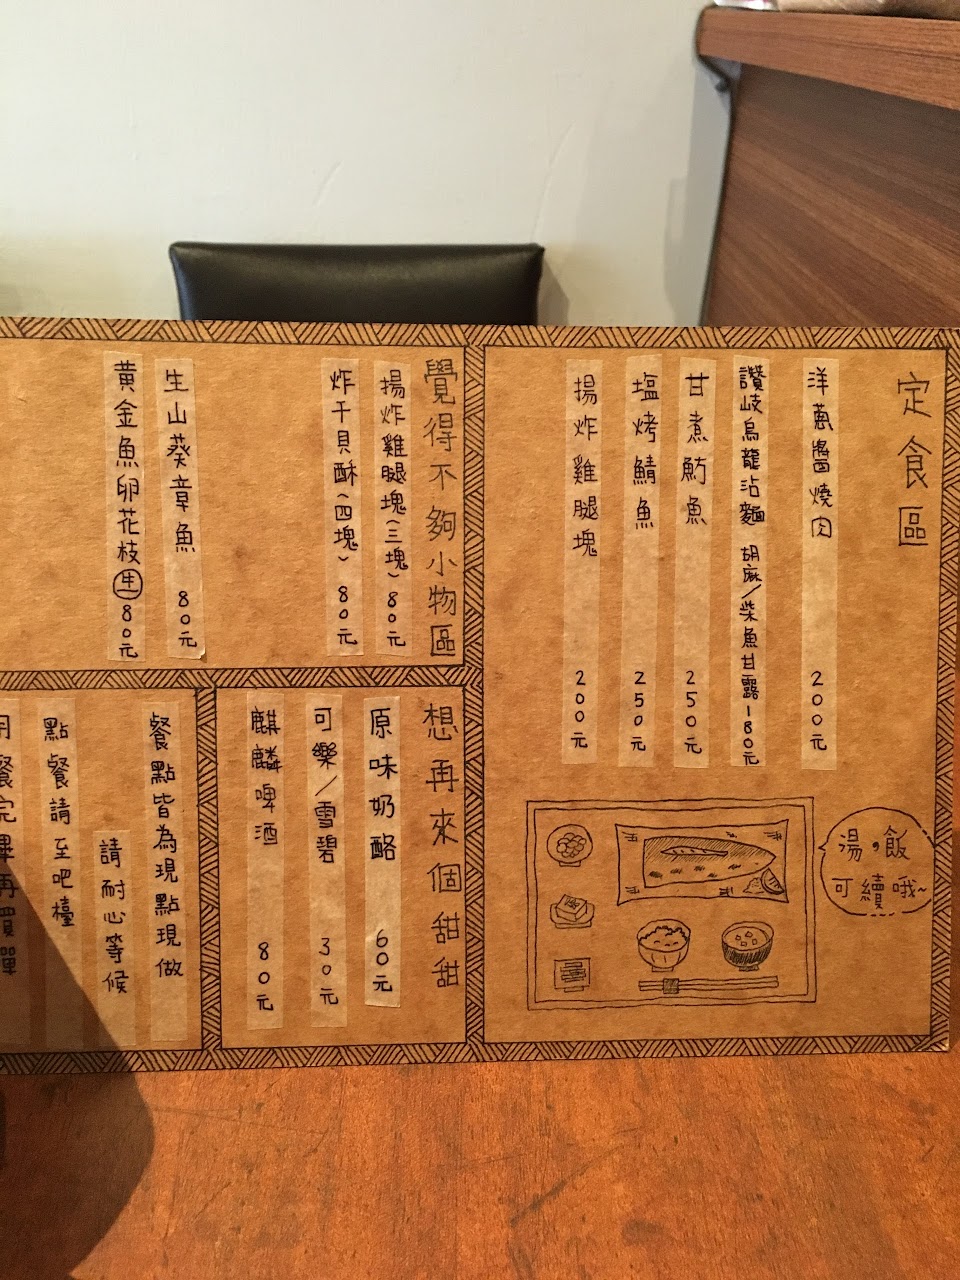 定食區
洋蔥醬燒肉 200元
讚岐烏龍沾麵 胡麻/柴魚甘露 180元
甘煮魴魚 250元
塩烤鯖魚 250元
揚炸雞腿塊 200元
湯・飯
可續哦~
覺得不夠小物區
揚炸雞腿塊(三塊) 80元
炸干貝酥(四塊) 80元
生山葵章魚 80元
黃金魚卵花枝生 80元
想再來個甜甜
原味奶酪 60元
可樂/雪碧 30元
麒麟啤酒 80元
餐點皆為現點現做
請耐心等候
點餐請至吧檯
用餐完畢再買單